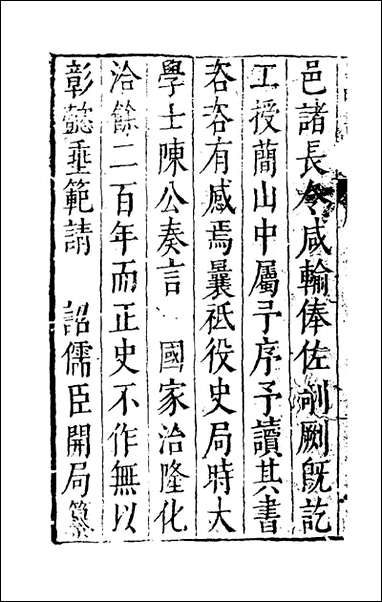 邑諸長令咸輸俸佐剞劂既訖
工授蕑山中屬予序予讀其書
咨咨有感焉曩祗役史局時大
學士陳公奏言　國家治隆化
洽餘二百年而正史不作無以
彰懿垂範請　詔儒臣開局纂